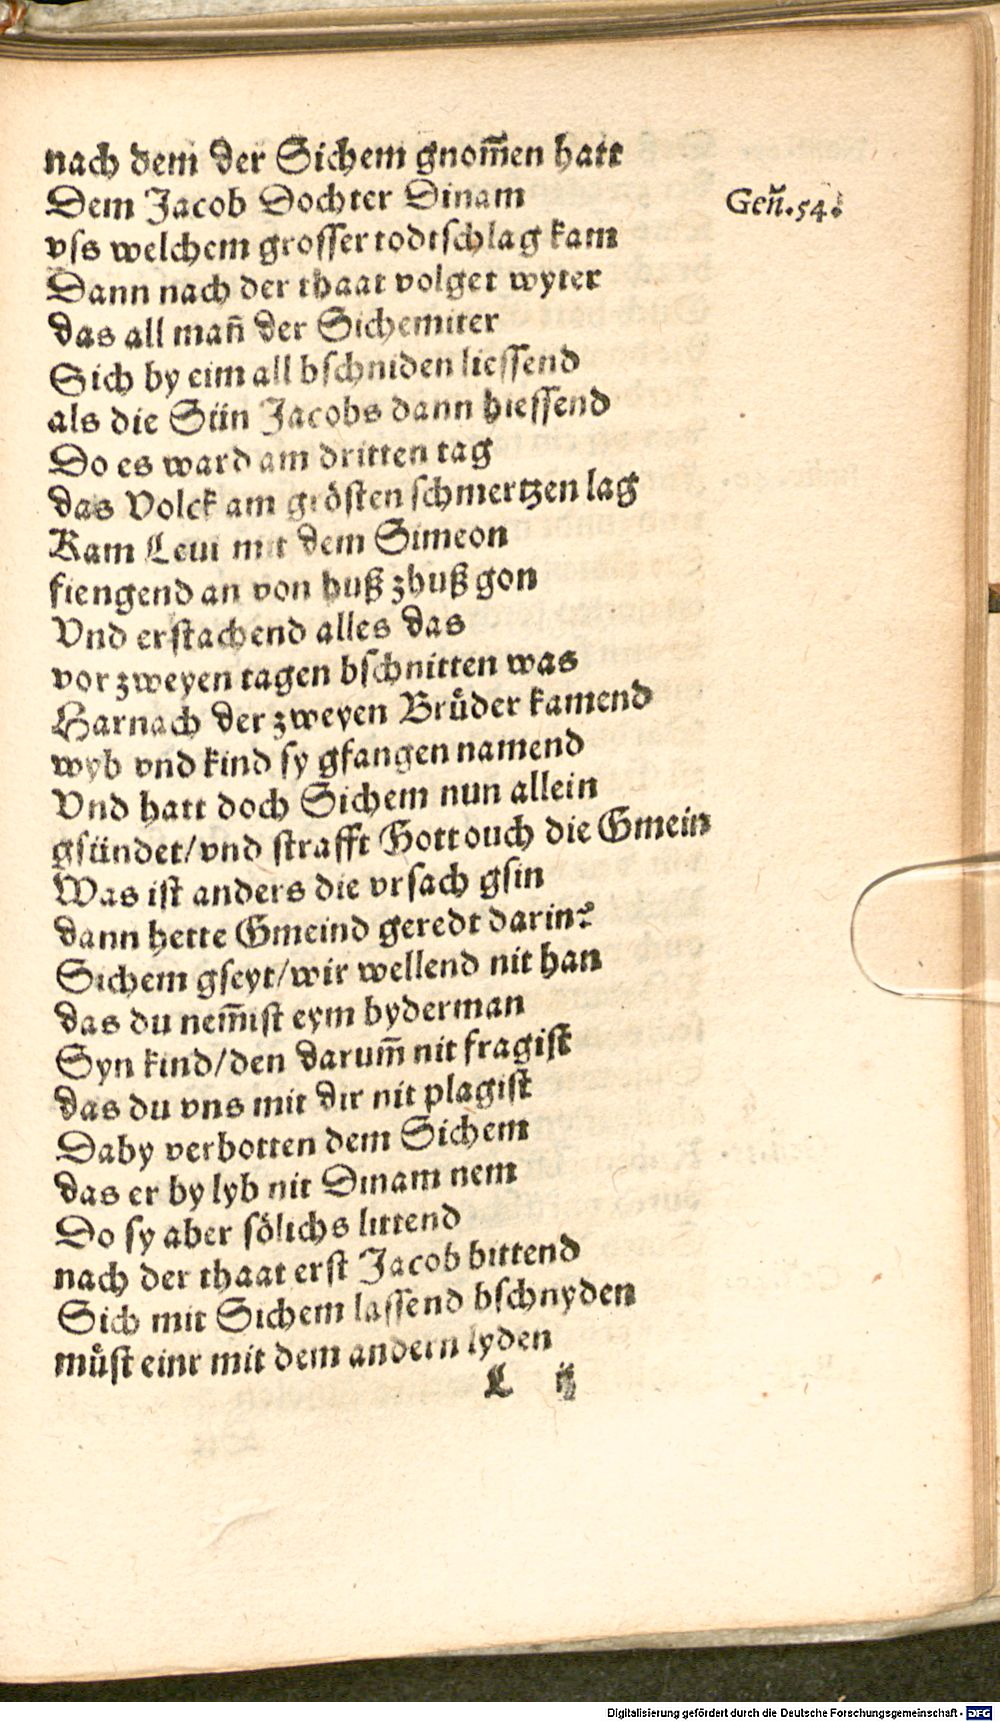 nach dem der Sichem gnom̃en hatt
Dem Jacob Dochter Dinam
Geñ.54.
vſs welchem groſſer todtſchlag kam
Dann nach der thaat volget wyter
das all mañ der Sichemiter
Sich by eim all bſchniden lieſſend
als die Sün Jacobs dann hieſſend
Do es ward am dritten tag
das Volck am gröſten ſchmertzen lag
Kam Leui mit dem Simeon
fiengend an von huß zhuß gon
Vnd erſtachend alles das
vor zweyen tagen bſchnitten was
Harnach der zweyen Brůder kamend
wyb vnd kind ſy gfangen namend
Vnd hatt doch Sichem nun allein
gſündet/vnd ſtrafft Gott ouch die Gmein
Was iſt anders die vrſach gſin
dann hette Gmeind geredt darin?
Sichem gſeyt/wir wellend nit han
das du nem̃iſt eym byderman
Syn kind/den darum̃ nit fragiſt
das du vns mit dir nit plagiſt
Daby verbotten dem Sichem
das er by lyb nit Dinam nem
Do ſy aber ſölichs littend
nach der thaat erſt Jacob bittend
Sich mit Sichem laſſend bſchnyden
můſt einr mit dem andern lyden
L ij
Digitalisierung gefördert durch die Deutsche Forschungsgemeinschaft - DFG